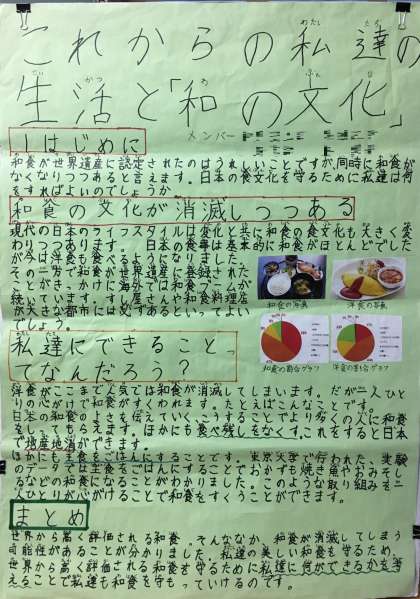 これからの私達の
わたし たち
生活と「和の文化」
せい かつ わ ぶん か
メンバー
1はじめに
和食が世界遺産に認定されたのはうれしいことですが、同時に和食が
なくなりつつあると言えます。日本の食文化を守るために私達は何
をすればよいのでしょうか
和食の文化が消滅しつつある
現代の日本のライフスタイルは変化と共に和食の食文化も大きく変
わりつつあります。日本の食事は基本的に和食がほとんどでした
が今は洋食も食べるようになりました。
その一方で和食が世界遺産に登録された
ことがきっかけに海外では和食ブームが
続いています。すし屋さんや和食料理店
が大きな都市には必ずあるといってよい
でしょう。
和食の写真
洋食の写真
和食の割合グラフ
洋食の割合グラフ
私達にできること
てなんだろう?
洋食がここまで人気では和食が消滅してしまいます。だが一人ひと
りの心がけで和食がすくわれます。たとえばこんなことです。
日本の和食のよさを伝えていく、こうすることでより多くの人に和食
をしってもらえます。ほかにも食べ残しをなくす、これをすると日本
で地産地消ができます。
ほかにも主食をごはんにすることです。東京大学で行われた、実験
のデータでは主食をごはんにすることでおかずも焼き魚やおみそし
るなどの和食になることがわかりました。このような取り組みを一
人ひとりが心がけることで和食をすくうことができます。
まとめ
世界から高く評価される和食。そんななか、和食が消滅してしまう
可能性があることが分かりました。私達の美しい和食を守るため、
世界から高く評価される和食を守るために私達に何ができるかを考
えることで私達も和食を守もっていけるのです。